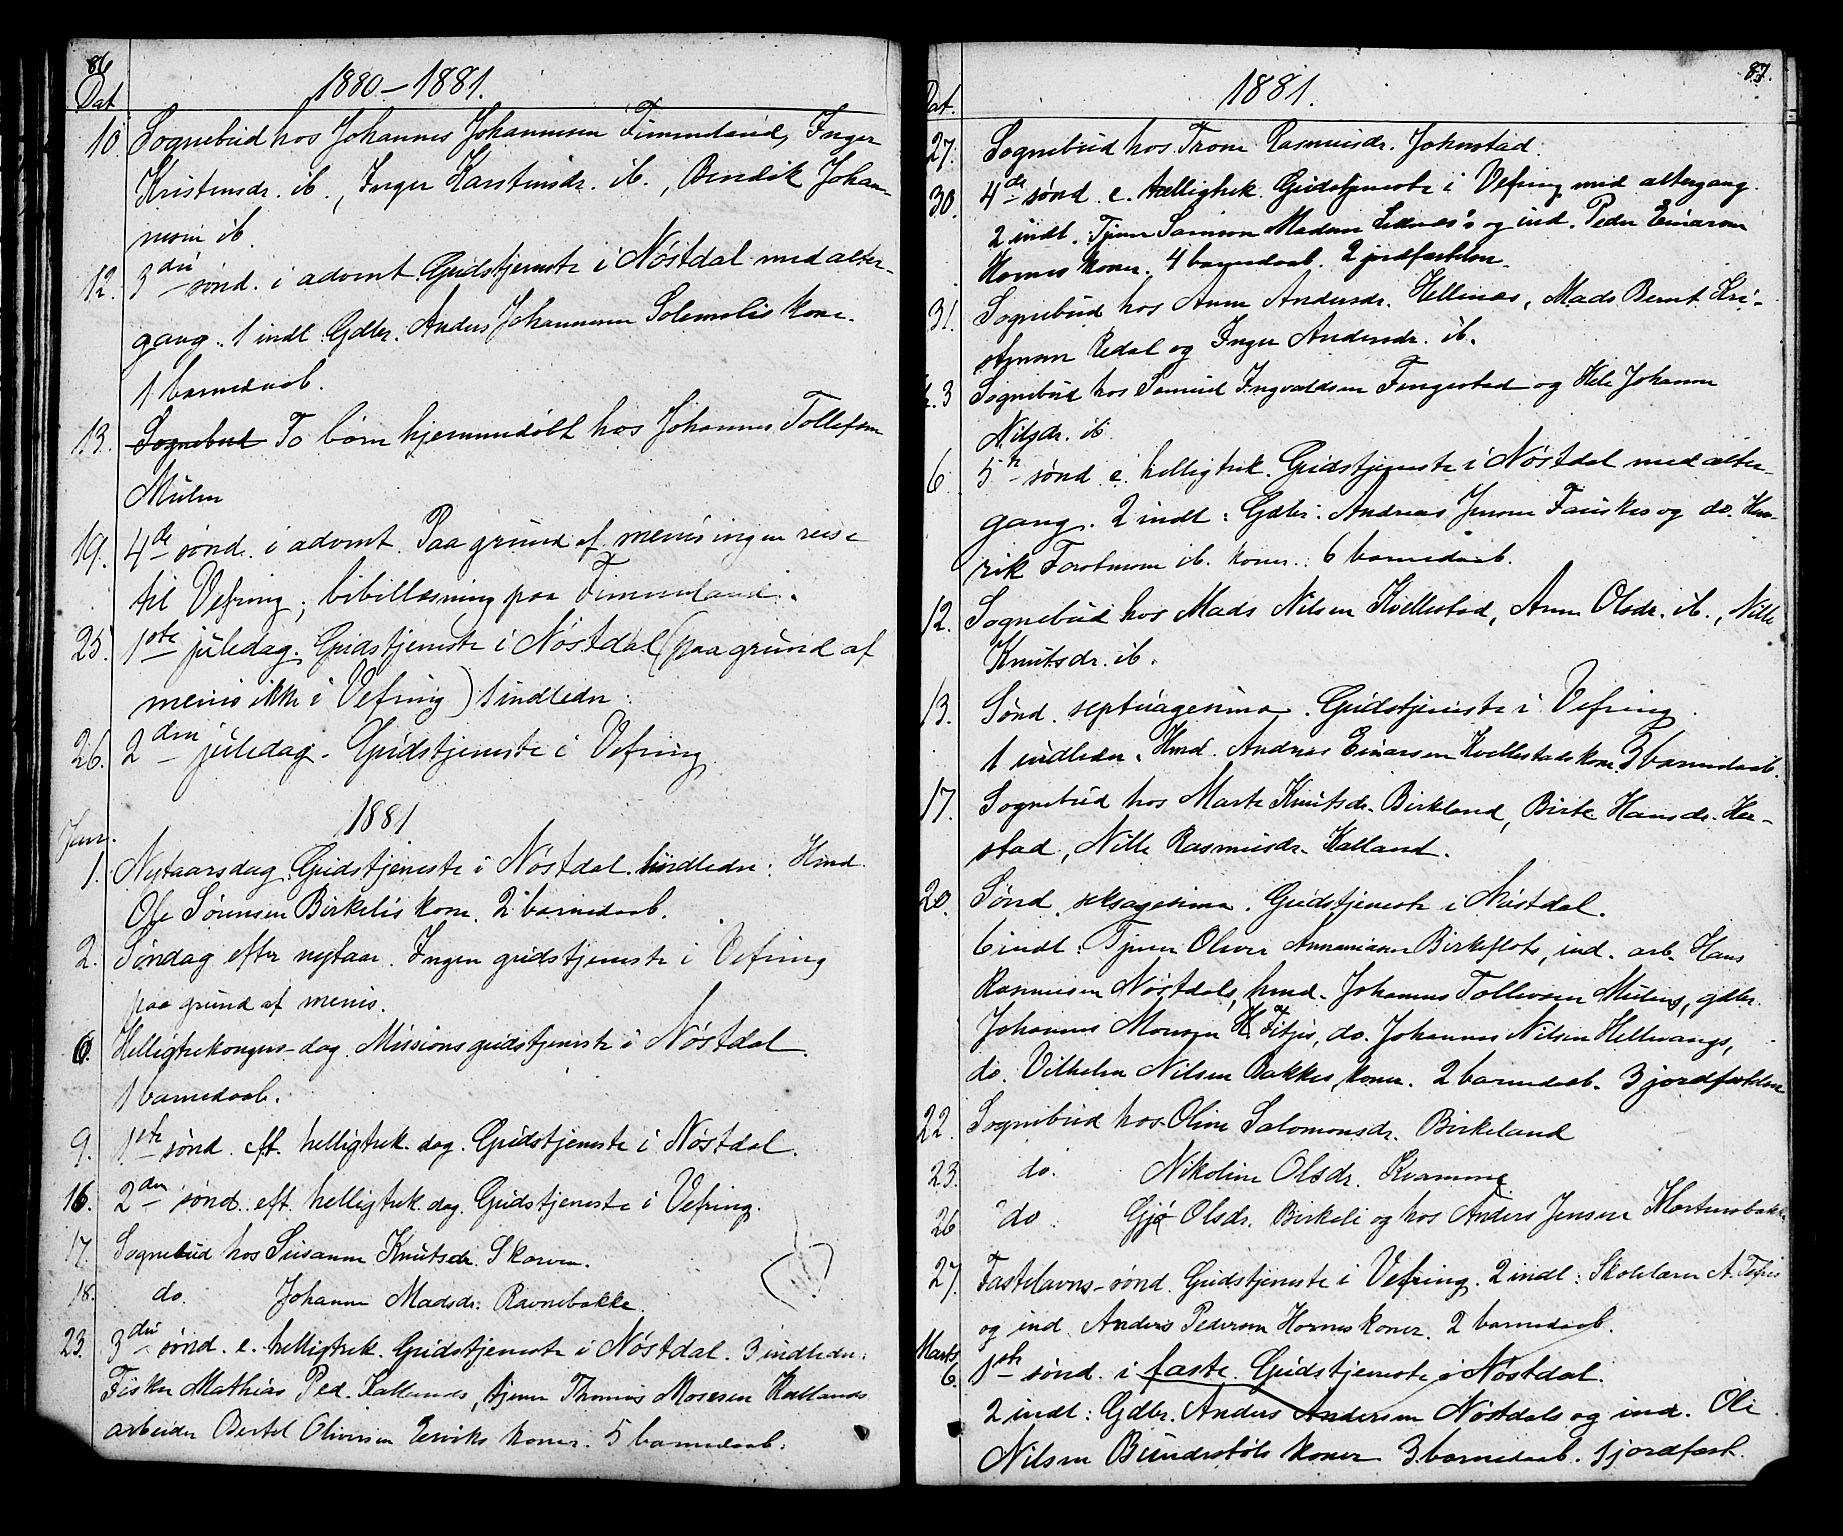 86
Dat.
1880–1881.
10. Sognebud hos Johannes Johannesen Timmeland, Inger
Kristensdr. ib., Inger Karstensdr. ib., Bendik Johan-
nesen ib.
12. 3die sønd. i advent. Gudstjeneste i Nøstdal med alter-
gang. 1 indl. Gdbr. Anders Johannesen Solemslis kone.
1 barnedaab.
13. Sognebud To børn hjemmedøbt hos Johannes Tollefsen
Mulen
19. 4de sønd. i advent. Paa grund af menis ingen reise
til Vefring; bibellæsning paa Timmeland.
25. 1ste juledag. Gudstjeneste i Nøstdal (paa grund af
menis ikke i Vefring) 1 indleder.
26. 2den juledag. Gudstjeneste i Vefring
1881
Jan.
1. Nytaarsdag. Gudstjeneste i Nøstdal. 1 indleder: Hmd.
Ole Sørensen Birkelis kone. 2 barnedaab.
2. Søndag efter nytaar. Ingen gudstjeneste i Vefring
paa grund af menis.
6. Helligtrekongers-dag. Missionsgudstjeneste i Nøstdal.
1 barnedaab.
9. 1ste sønd. eft. helligtrek. dag. Gudstjeneste i Nøstdal.
16. 2den sønd. eft. helligtrek. dag. Gudstjeneste i Vefring.
17. Sognebud hos Susanne Knutsdr. Skorven.
18. do. Johanne Madsdr. Ravnebakke.
23. 3die sønd. e. helligtrek. Gudstjeneste i Nøstdal. 3 indleder:
Fisker Mathias Ped. Kallands, tjener Thomas Mosesen Kallands
arbeider Bertel Oliversen koner. 5 barnedaab.
87.
Dat.
1881.
27. Sognebud hos Trone Rasmusdr. Johnstad.
30. 4de sønd. e. helligtrek. Gudstjeneste i Vefring med altergang.
2 indl. Tjener Samson Madsen og ind. Peder Einarsen
Hornes koner. 4 barnedaab. 2 jordfæstelser.
31. Sognebud hos Anne Andersdr. Hellenæs, Mads Bernt Kri-
stensen Redal og Inger Andersdr. ib.
3 Sognebud hos Samuel Ingvaldsen Fengestad og Johanne
Nilsdr. ib.
6. 5te sønd. e. helligtrek. Gudstjeneste i Nøstdal med alter-
gang. 2 indl: Gdbr. Andreas Jensen Fauskes og do. Hen-
rik ib. koner. 6 barnedaab.
12. Sognebud hos Mads Nilsen Kvellestad, Anne Olsdr. ib., Nille
Knutsdr. ib.
13. Sønd. septuagesima. Gudstjeneste i Vefring.
1 indleder. Hmd. Andreas Einarsen Kvellestads kone. 3 barnedaab.
17. Sognebud hos Marte Knutsdr. Birkeland, Birte Hansdr. Her-
stad, Nille Rasmusdr. Kalland.
20. Sønd. seksagesima. Gudstjeneste i Nøstdal.
6 indl: Tjener Oliver Ananiasen Birkeflots, ind. arb. Hans
Rasmusen Nøstdals, hmd. Johannes Tollevsen Mulens, gdbr.
Johannes Monsen Fitjes, do. Johannes Nilsen Hellevangs,
do. Vilhelm Nilsen Bakkes koner. 2 barnedaab. 3 jordfæstelser
22. Sognebud hos Oline Salomonsdr. Birkeland
23. do. Nikoline Olsdr. Kvamme
26 do. Gjø Olsdr. Birkeli og hos Anders Jensen Mortensbakke
27. Fastelavns-sønd. Gudstjeneste i Vefring. 2 indl: Skolelærer A. Fitjes
og ind. Anders Pedersen Hornes koner. 2 barnedaab.
Marts
6. 1ste sønd. i faste. Gudstjeneste i Nøstdal.
2 indl: Gdbr. Anders Andersen Nøstdals og ind. Ole
Nilsen Bundestøls koner 3 barnedaab. 1 jordfæst.